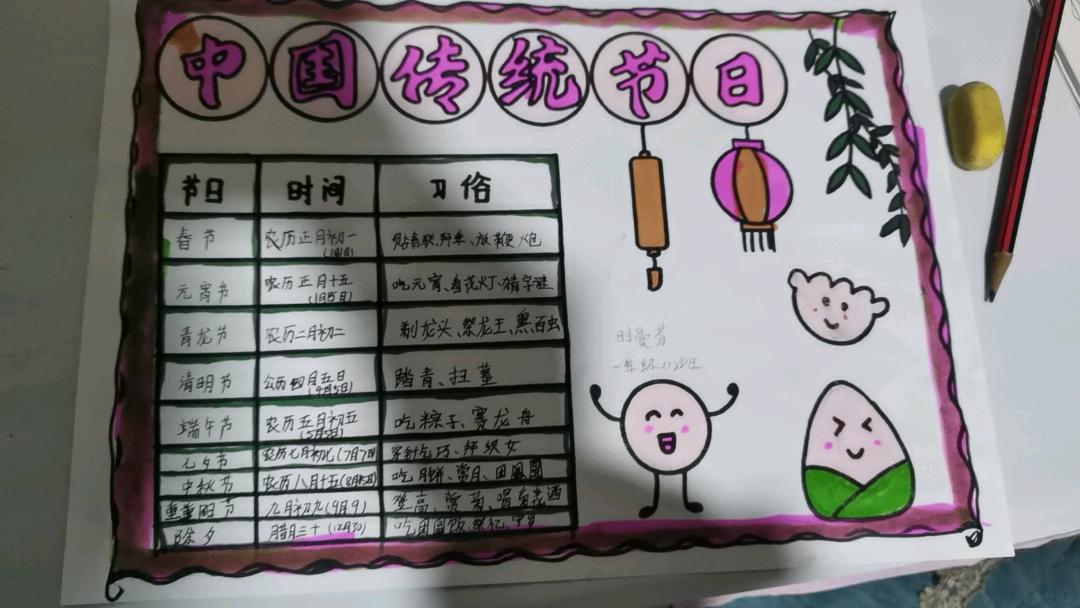 中国传统节日
节日 时间 习俗
春节 农历正月初一(1月1日) 贴春联、拜年、放鞭炮
元宵节 农历正月十五(1月15日) 吃元宵、看花灯、猜字谜
青龙节 农历二月初二 剃龙头、祭龙王、熏百虫
清明节 公历四月五日(4月5日) 踏青、扫墓
端午节 农历五月初五(5月5日) 吃粽子、赛龙舟
七夕节 农历七月初七(7月7日) 穿针乞巧、拜织女
中秋节 农历八月十五(8月15日) 吃月饼、赏月、团圆
重 节 九月初九(9月9) 登高、赏菊、喝菊花酒
除夕 腊月三十(12月30) 吃团圆饭、祭祀、守岁
时曼芬
一年级(1)班